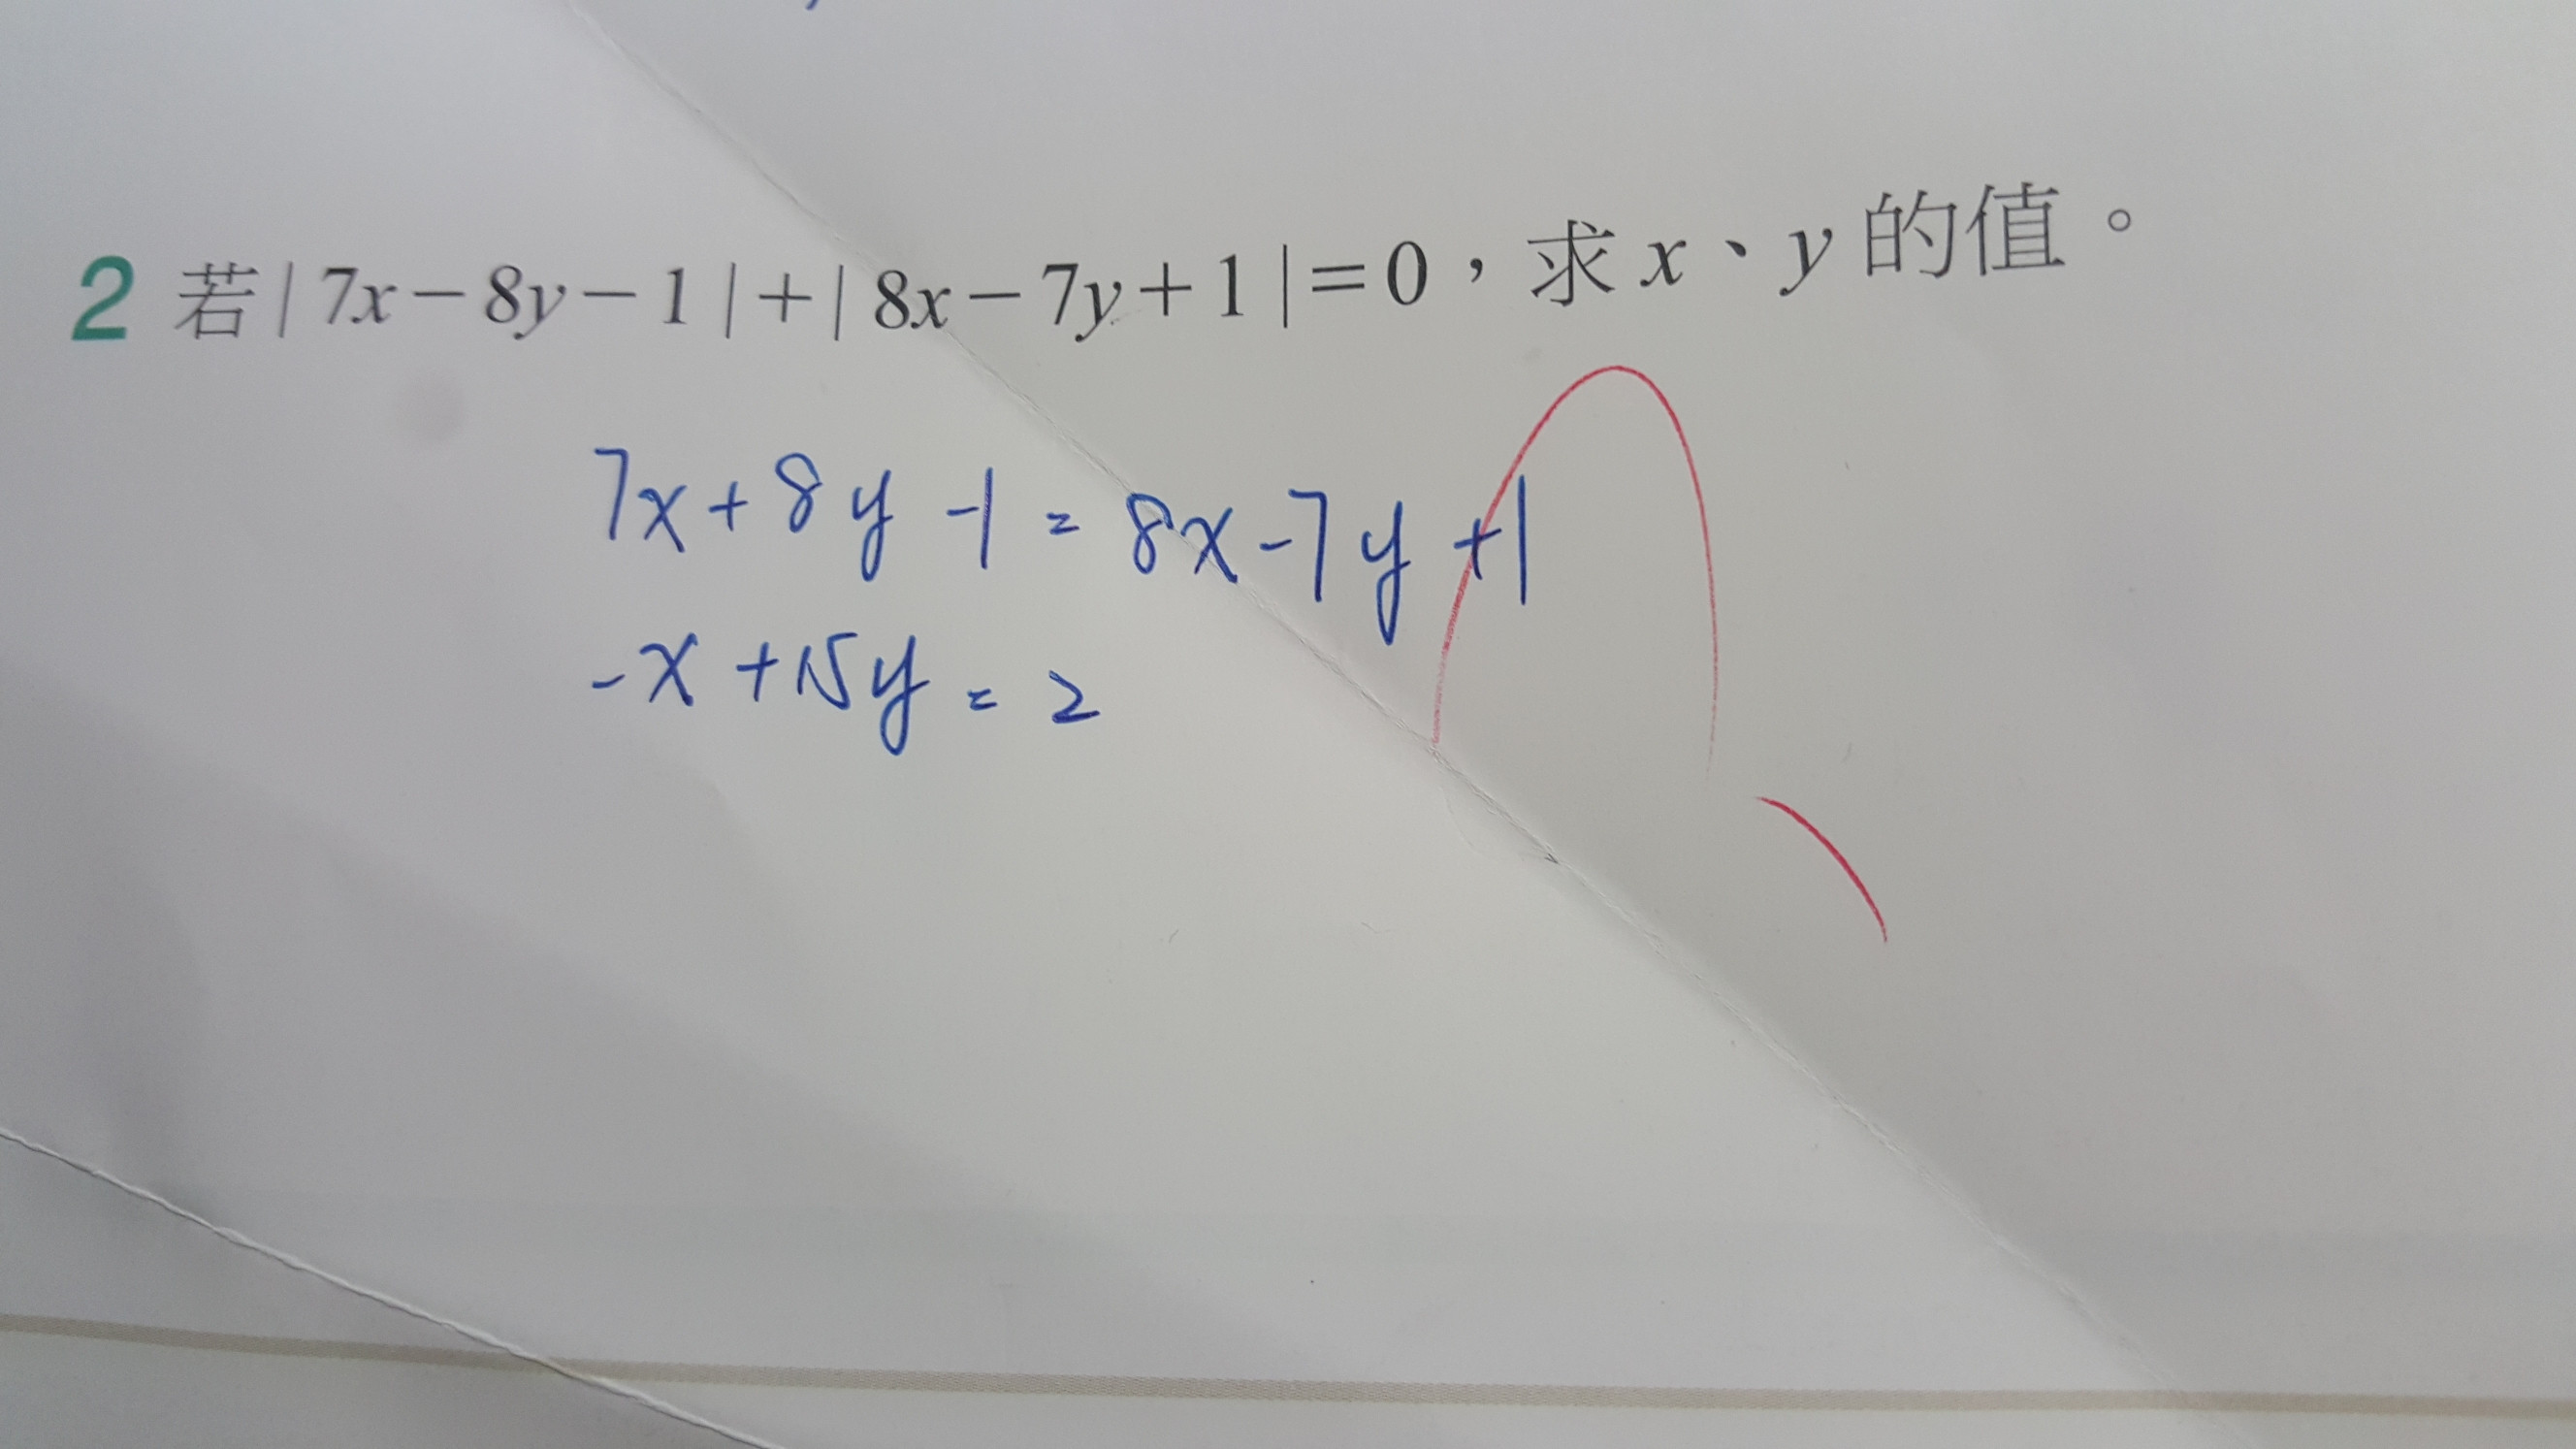 2 若| 7x－8y－1 |＋| 8x－7y＋1 |＝0，求 x、y 的值。
7x+8y-1=8x-7y+1
-x+15y=2